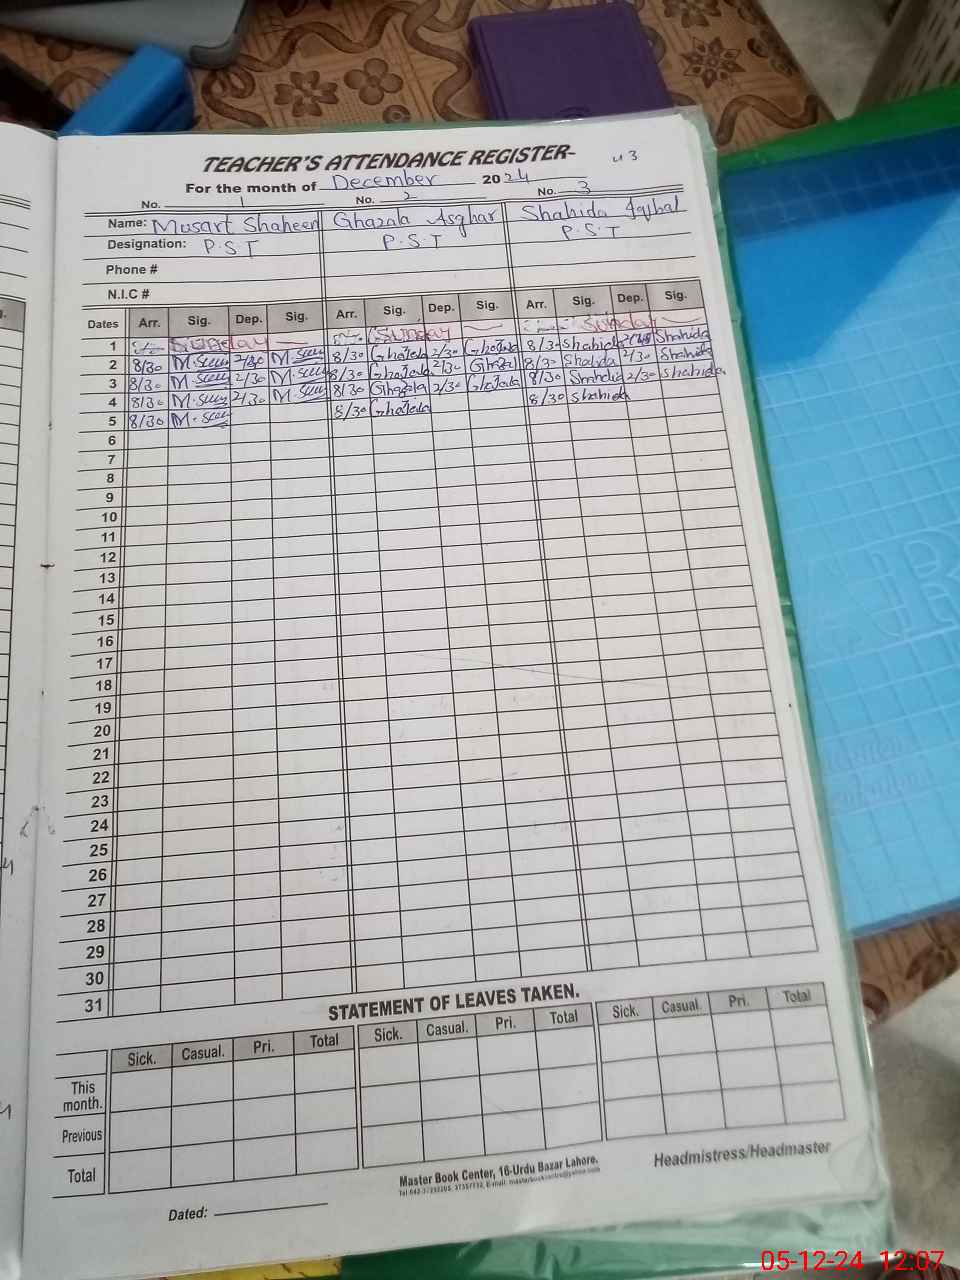 TEACHER'S ATTENDANCE REGISTER-
For the month of December 2024
No. 1 No. 2 No. 3
Name: Musart Shaheen Ghazala Asghar Shahida Iqbal
Designation: P.S.T P.S.T P.S.T
Phone #
N.I.C #
Dates Arr. Sig. Dep. Sig. Arr. Sig. Dep. Sig. Arr. Sig. Dep. Sig.
1 Sunday Sunday Sunday
2 8/30 2/30 8/30 Ghazala 2/30 Ghazala 8/30 Shahida Shahida
3 8/30 2/30 8/30 Ghazala 2/30 8/30 Shahida 2/30 Shahida
4 8/30 2/30 8/30 Ghazala 2/30 Ghazala 8/30 Shahida 2/30 Shahida
5 8/30 8/30 Ghazala 8/30 Shahida
6
7
8
9
10
11
12
13
14
15
16
17
18
19
20
21
22
23
24
25
26
27
28
29
30
31
STATEMENT OF LEAVES TAKEN.
Sick. Casual. Pri. Total Sick. Casual. Pri. Total Sick. Casual. Pri. Total
This month.
Previous
Total
Master Book Center, 16-Urdu Bazar Lahore.
Headmistress/Headmaster
Dated:
05-12-24 12:07